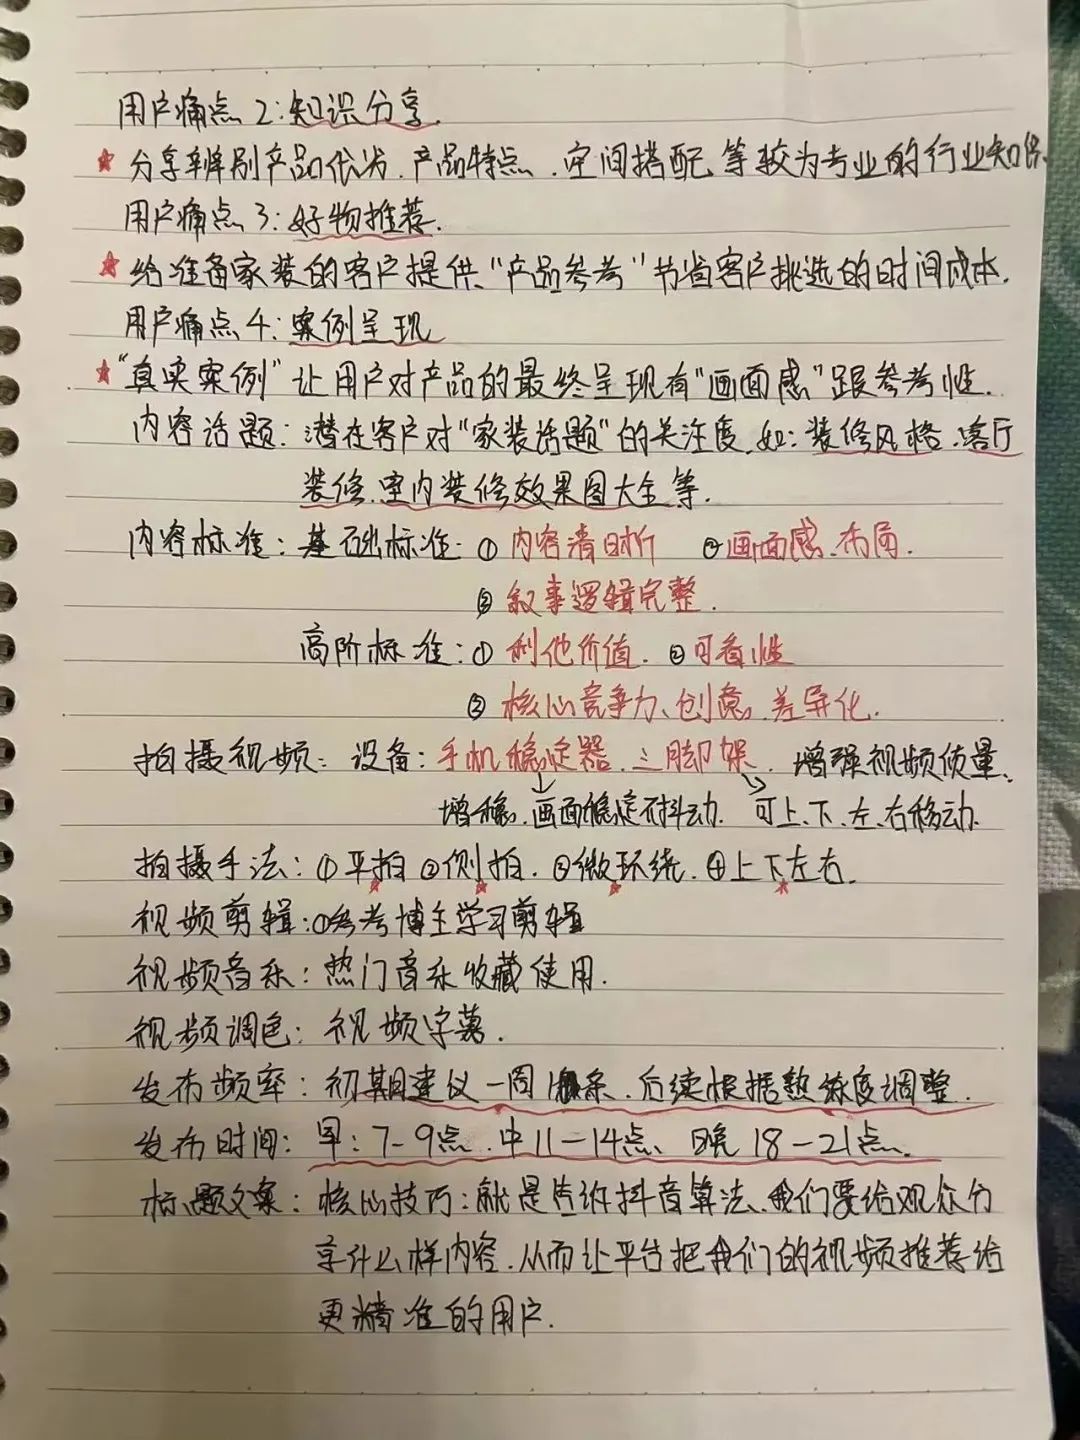 用户痛点2:知识分享.
★ 分享辨别产品优劣.产品特点.空间搭配等较为专业的行业知识.
用户痛点3:好物推荐.
★ 给准备家装的客户提供“产品参考”节省客户挑选的时间成本.
用户痛点4:案例呈现
★“真实案例”让用户对产品的最终呈现有“画面感”跟参考性.
内容话题:潜在客户对“家装话题”的关注度.如:装修风格.客厅
装修.室内装修效果图大全等.
内容标准:基础标准:①内容清晰 ②画面感.布局.
③叙事逻辑完整.
高阶标准:①利他价值. ②可看性
③核心竞争力、创意.差异化.
拍摄视频:设备:手机稳定器.三脚架.增强视频质量.
增稳.画面稳定不抖动. 可上、下、左、右移动.
拍摄手法:①平拍②侧拍.③微环绕.④上下左右.
视频剪辑:①参考博主学习剪辑
视频音乐:热门音乐收藏使用.
视频调色:视频字幕.
发布频率:初期建议一周 条.后续根据熟练度调整.
发布时间:早:7-9点.中11-14点、晚18-21点.
标题文案:核心技巧:就是告诉抖音算法、我们要给观众分
享什么样内容.从而让平台把我们的视频推荐给
更精准的用户.